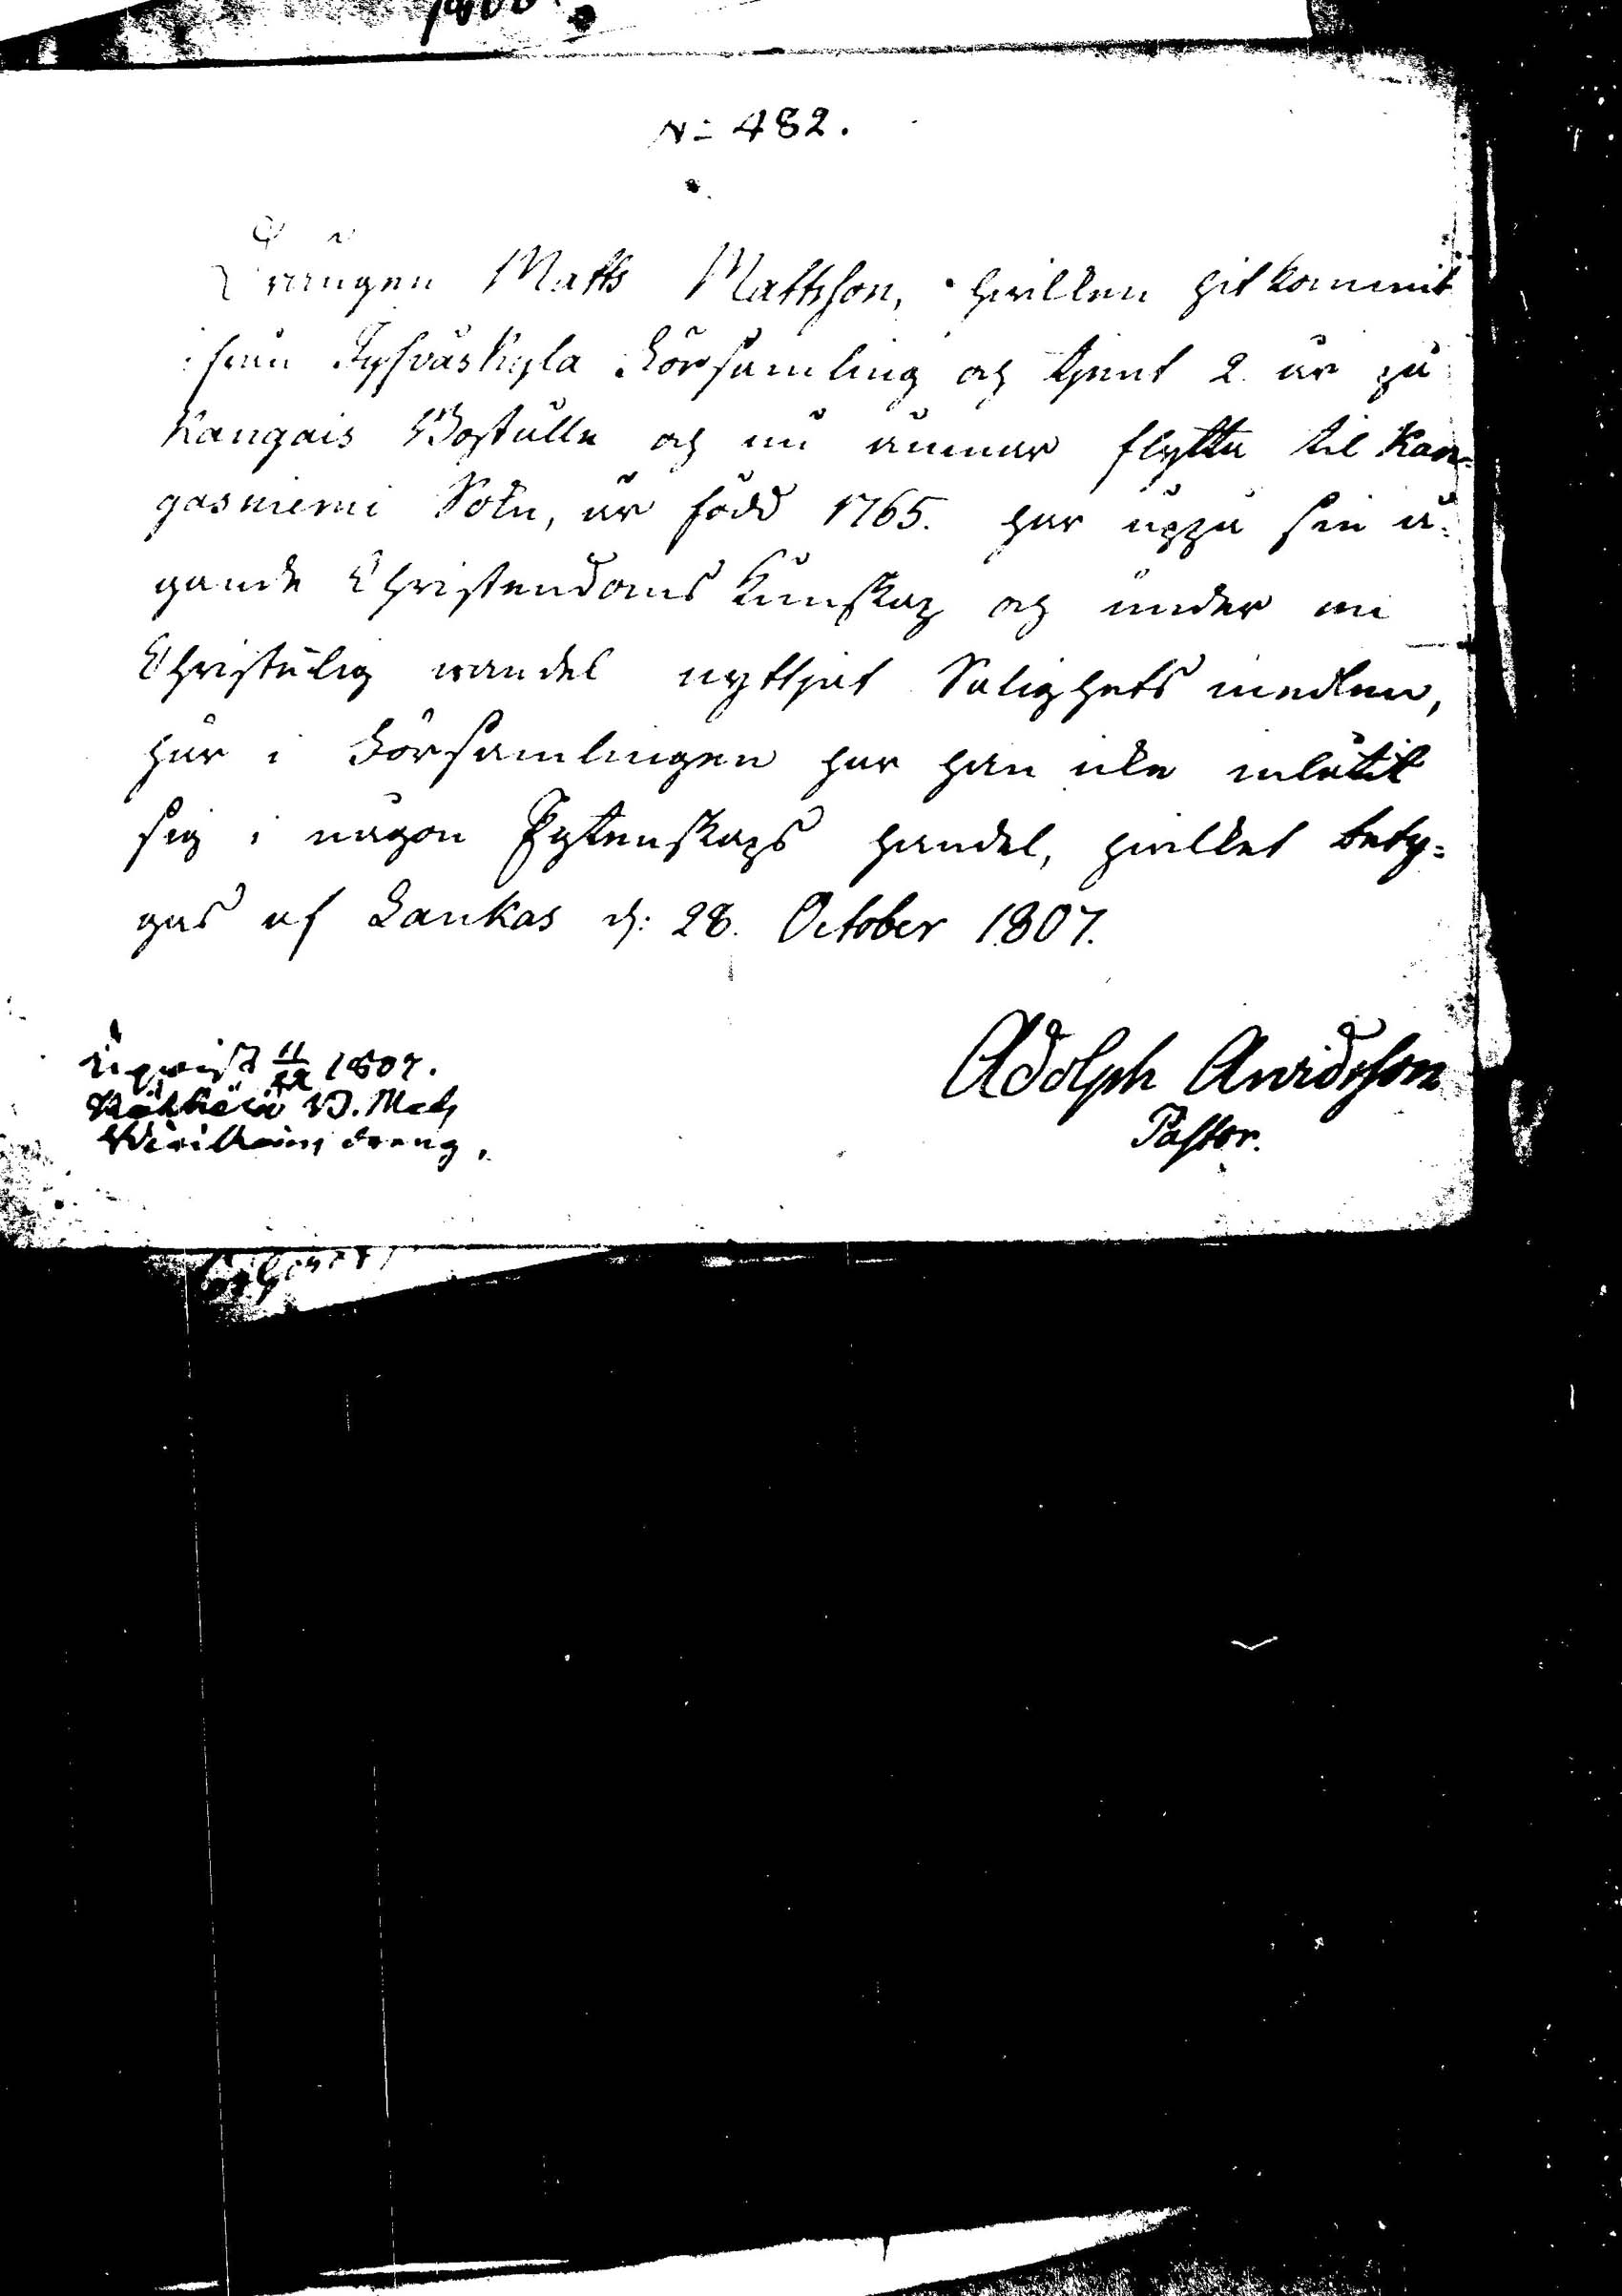 N= 482.
Drängen Matts Mattsson, hvilken hitkommit
ifrån Jyfväskyla Församling och tjent 2 år på
Kangais Boställe och nu ämnar flytta til Kan=
gasniemi Sokn, är född 1765. har uppå sin ä=
gande Christendoms Kunskap och under en
Christelig wandel nyttjat Salighets medlen,
här i Församlingen har han icke inlåtit
sig i någon Ecktenskaps handel, hvilket bety=
gas af Laukas d: 28. October 1807.
Adolph Arvidsson
Pastor.
Upvist 11/12 1807.
dreng.